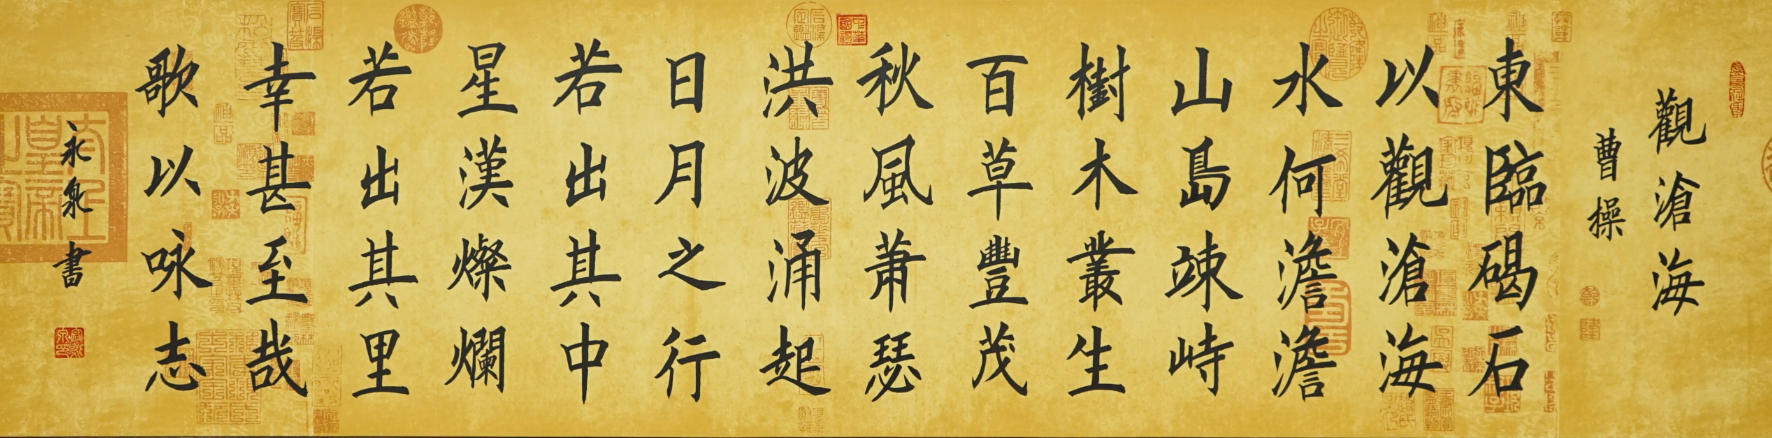 觀滄海
曹操
東臨碣石
以觀滄海
水何澹澹
山島竦峙
樹木叢生
百草豐茂
秋風蕭瑟
洪波涌起
日月之行
若出其中
星漢燦爛
若出其里
幸甚至哉
歌以咏志
永泉書